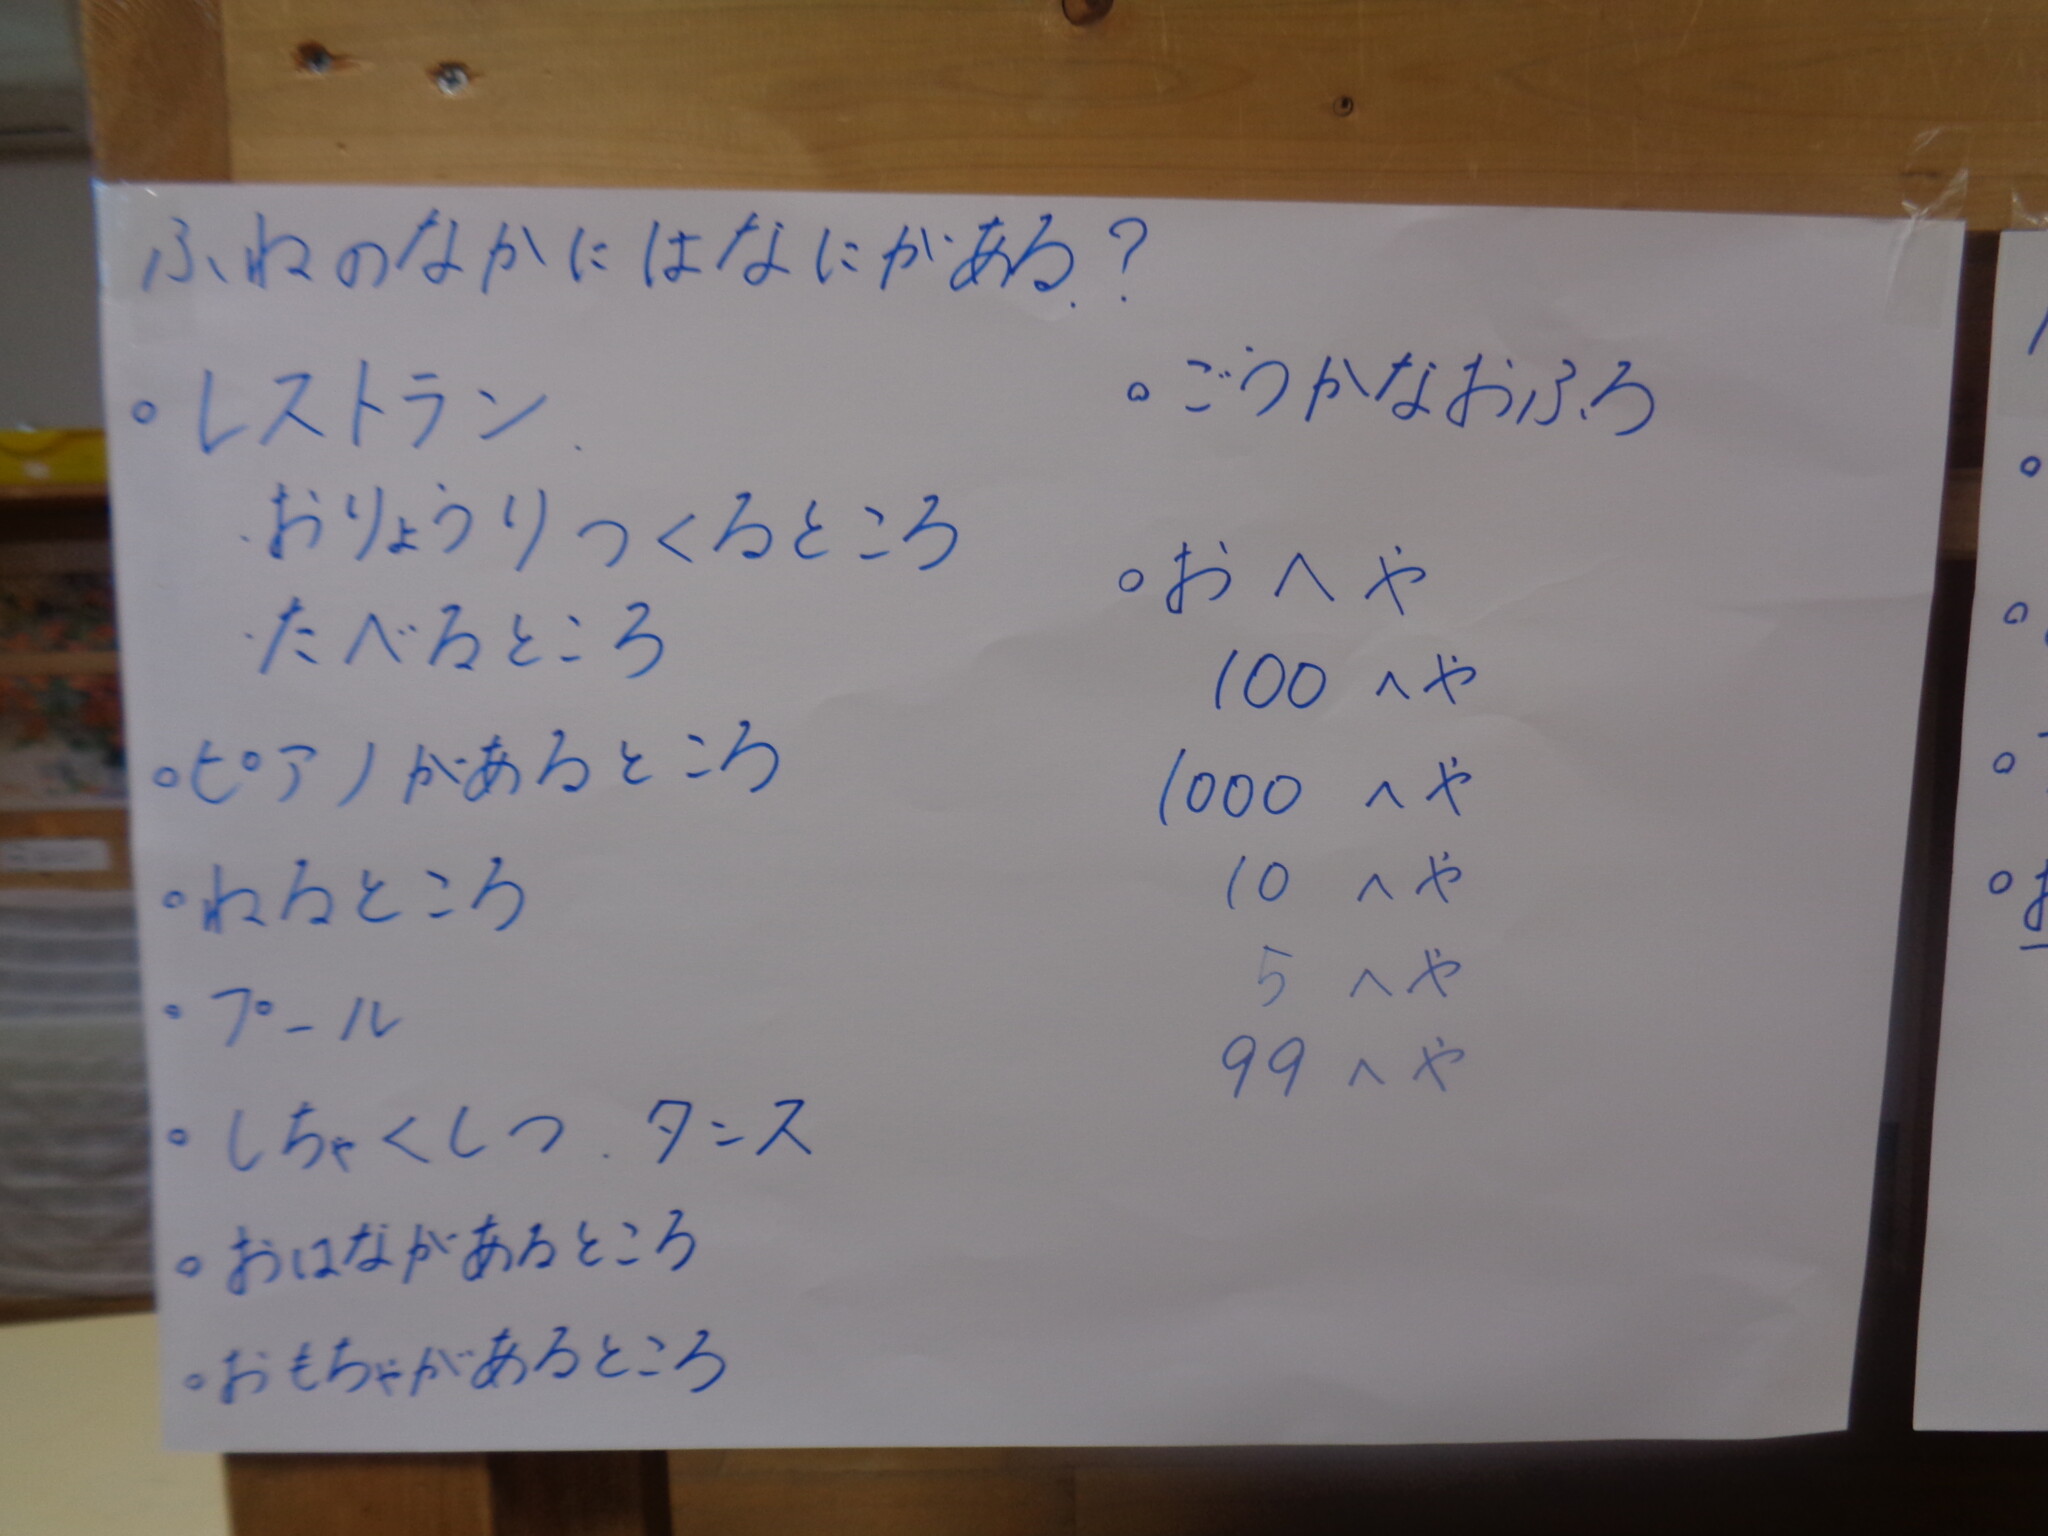 ふねのなかにはなにがある?
○レストラン
・おりょうりつくるところ
・たべるところ
○ピアノがあるところ
○ねるところ
○プール
○しちゃくしつ、タンス
○おはながあるところ
○おもちゃがあるところ
○ごうかなおふろ
○おへや
100 へや
1000 へや
10 へや
5 へや
99 へや